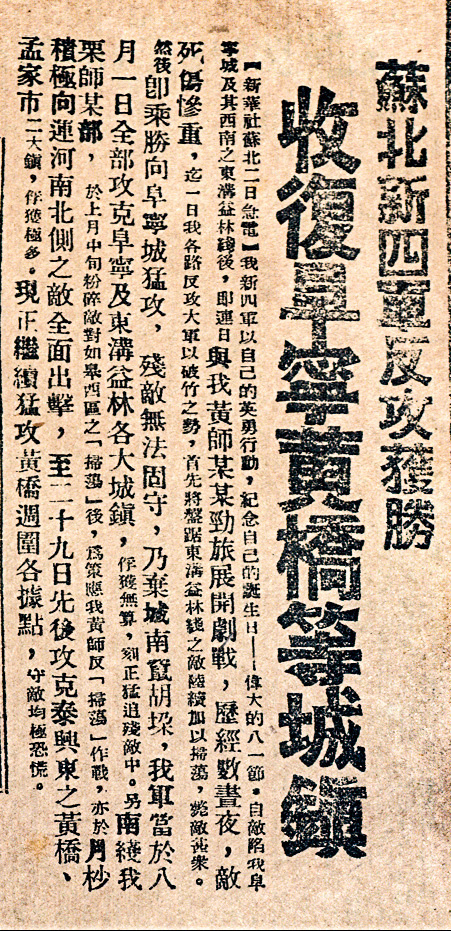 蘇北新四軍反攻獲勝
收復阜寧黃橋等城鎮
【新華社蘇北二日急電】我新四軍以自己的英勇行動，紀念自己的誕生日——偉大的八一節。自敵陷我阜
寧城及其西南之東溝益林綫後，即連日與我黃師某某勁旅展開劇戰，歷經數晝夜，敵
死傷慘重，迄一日我各路反攻大軍以破竹之勢，首先將盤踞東溝益林綫之敵陸續加以掃蕩，斃敵甚衆。
然後卽乘勝向阜寧城猛攻，殘敵無法固守，乃棄城南竄胡垜，我軍當於八
月一日全部攻克阜寧及東溝益林各大城鎮，俘獲無算，刻正猛追殘敵中。另南綫我
栗師某部，於上月中旬粉碎敵對如皋西區之「掃蕩」後，爲策應我黃師反「掃蕩」作戰，亦於月杪
積極向運河南北側之敵全面出擊，至二十九日先後攻克泰興東之黃橋、
孟家市二大鎮，俘獲極多。現正繼續猛攻黃橋週圍各據點，守敵均極恐慌。